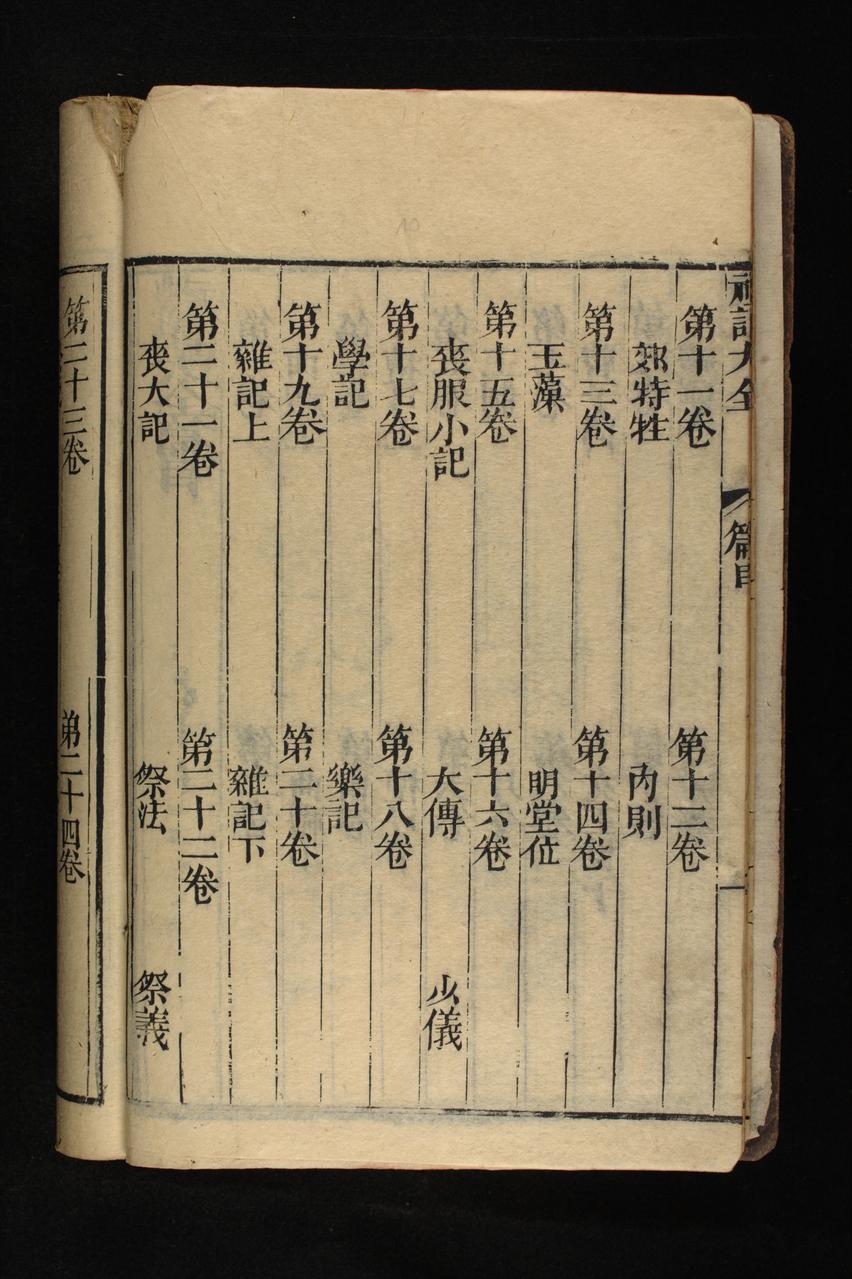 禮記大全 篇目 一
第十一卷 第十二卷
郊特牲 內則
第十三卷 第十四卷
玉藻 明堂位
第十五卷 第十六卷
喪服小記 大傳 少儀
第十七卷 第十八卷
學記 樂記
第十九卷 第二十卷
雜記上 雜記下
第二十一卷 第二十二卷
喪大記 祭法 祭義
第二十三卷 第二十四卷